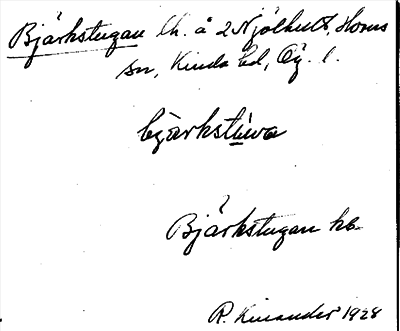 Björkstugan lh. å 2 Mjölhult, Horns
sn, Kinda hd, Ög. l.
bjärkstùwa
Björkstugan hb.
R. Kinander 1928